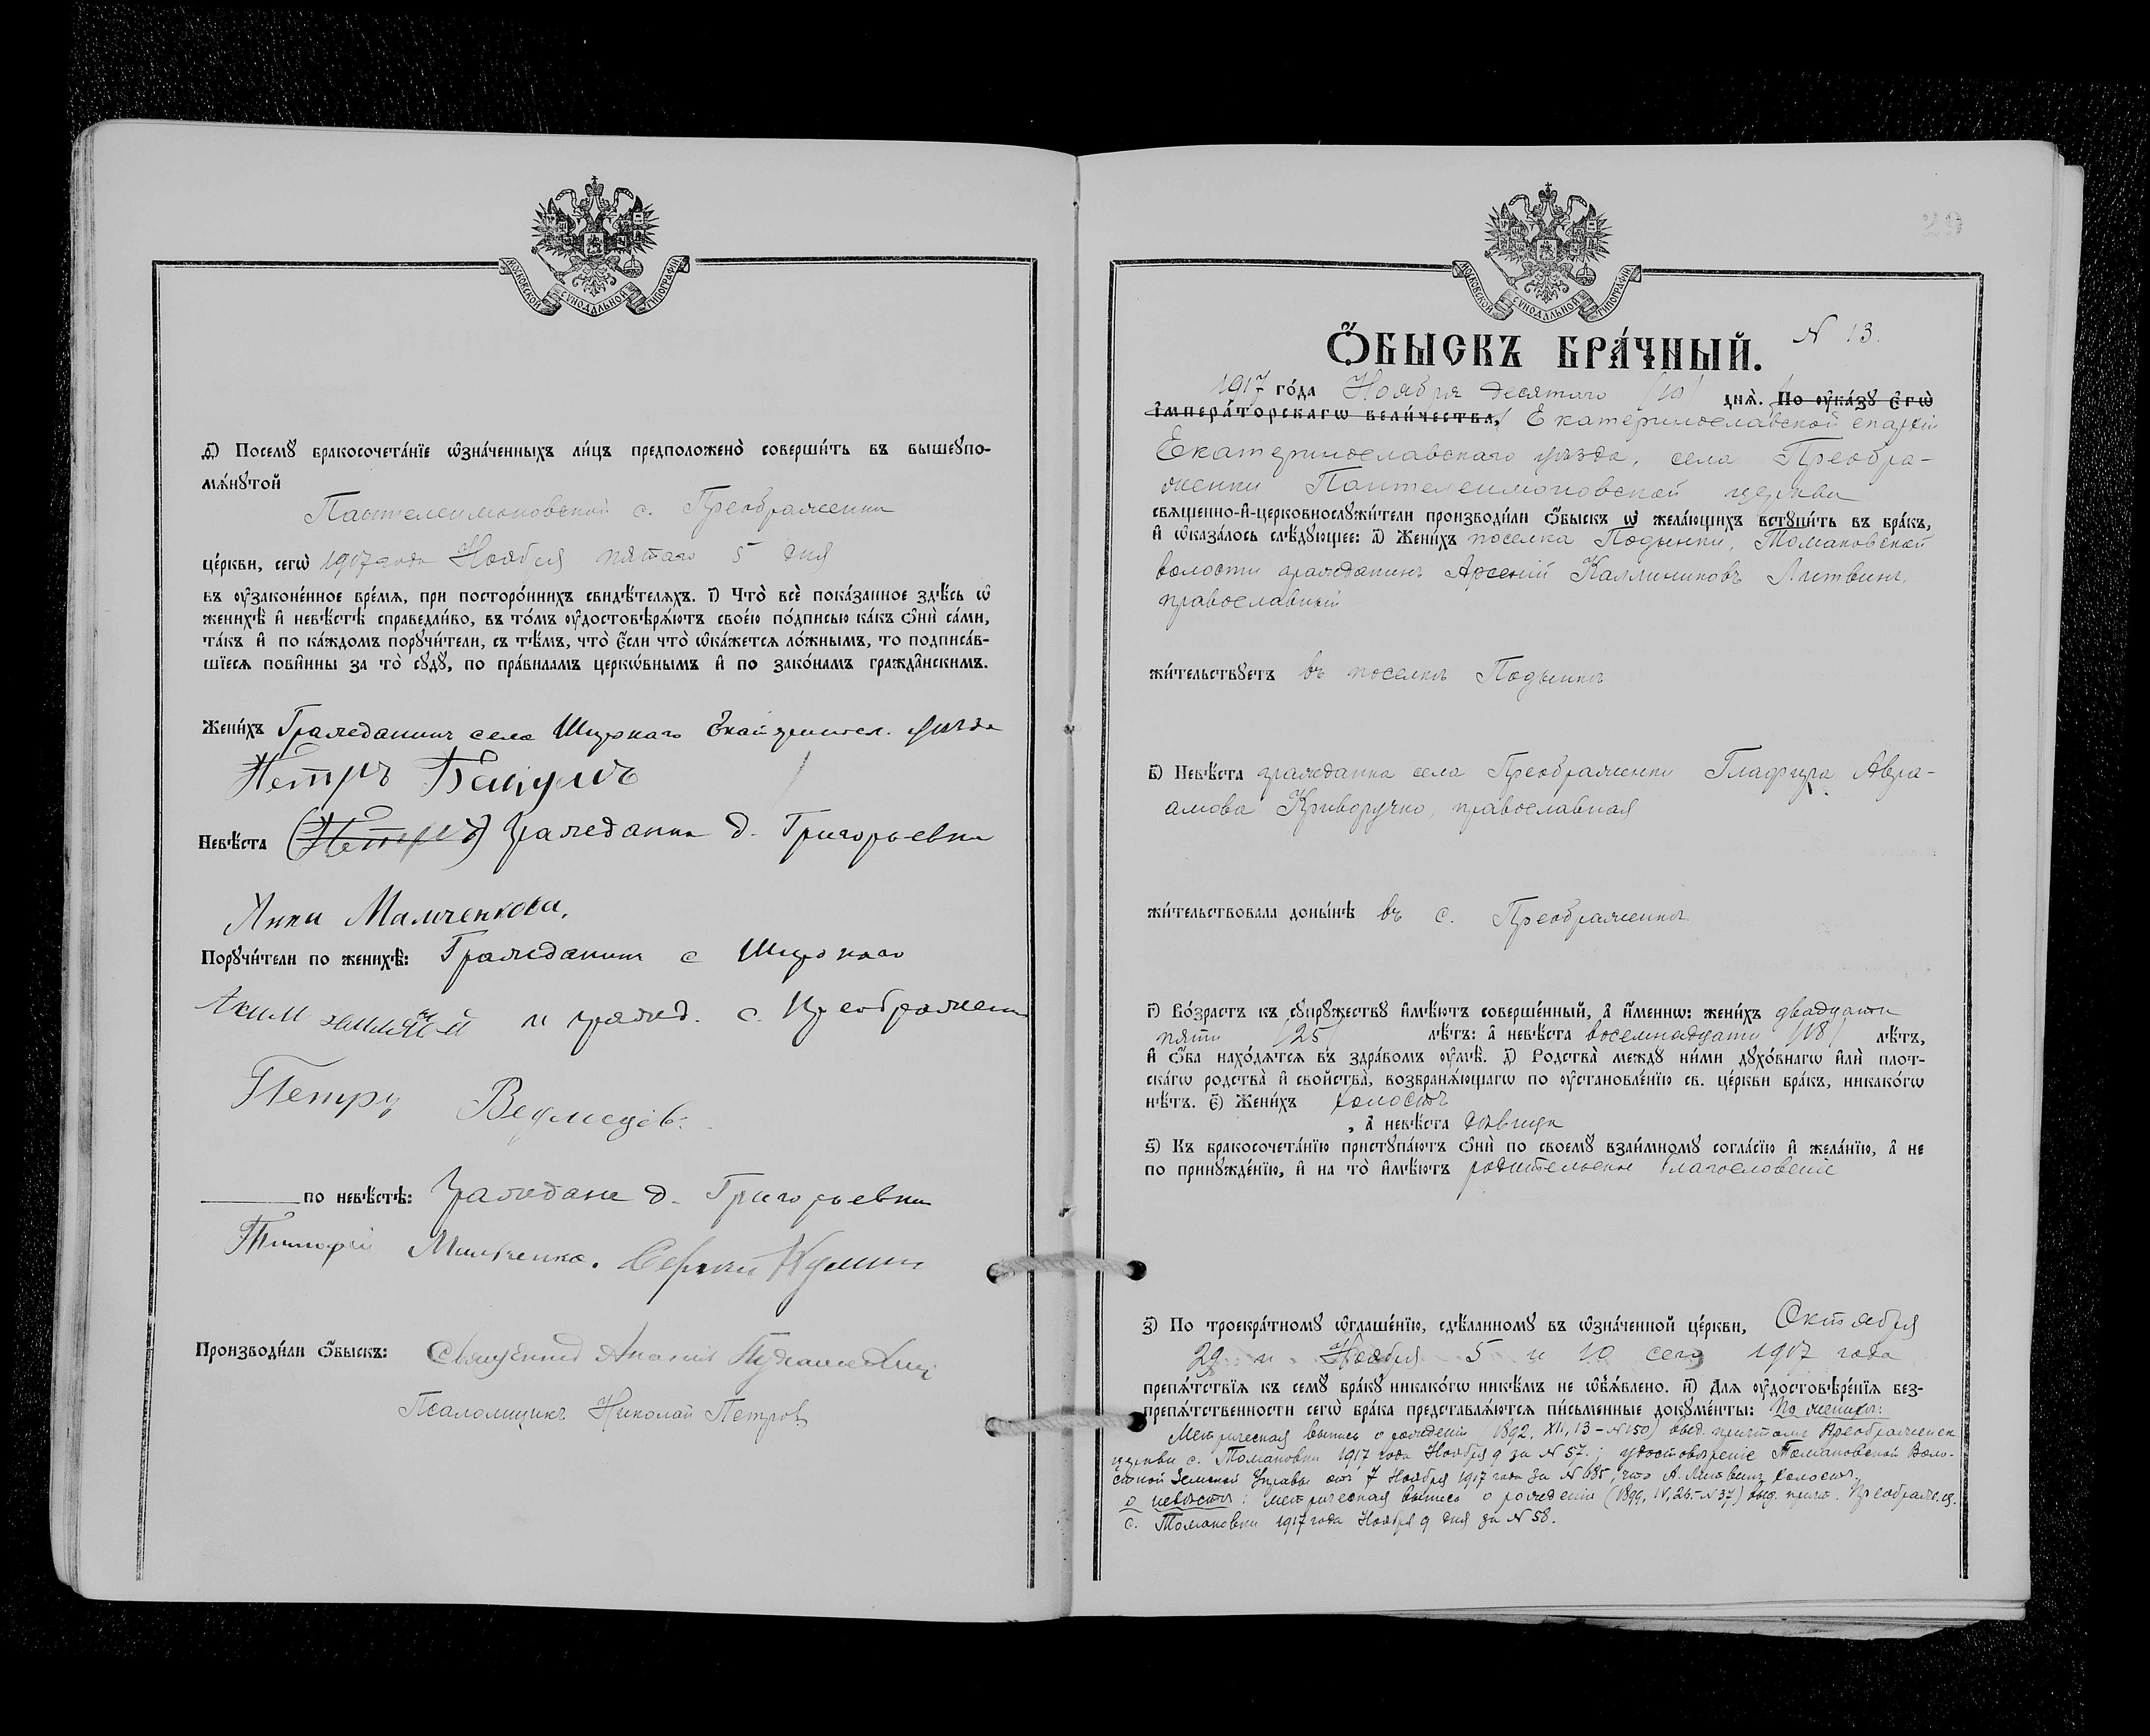 МОСКОВСКОЙ СѴНОДАЛЬНОЙ ТИПОГРАФІИ
д҃і) Посемꙋ̀ бракосочета́нїе ѡ҆зна́ченныхъ ли́цъ предположено̀ соверши́ть въ вышеꙋпо-
мѧ́нꙋтой
Пантелеимоновской с. Преображенки
це́ркви, сегѡ̀ 1917 года Ноября пятаго 5 дня
въ ᲂу҆зако́ненное вре́мѧ, при посторо́ннихъ свидѣ́телѧхъ. і҃) Что̀ всѐ пока́занное здѣ́сь ѡ҆
женихѣ̀ и҆ невѣ́стѣ справедли́во, въ то́мъ ᲂу҆достовѣрѧ́ютъ свое́ю по́дписью ка́къ ѻ҆нѝ са́ми,
та́къ и҆ по ка́ждомъ порꙋчи́тели, съ тѣ́мъ, что̀ є҆́сли что̀ ѡ҆ка́жетсѧ ло́жнымъ, то подписа́в-
шїесѧ пови́нны за то̀ сꙋдꙋ̀, по пра́виламъ церко́внымъ и҆ по зако́намъ гражда́нскимъ.
Жени́хъ Гражданинъ села Широкаго уѣзда
Петръ
Невѣ́ста (Петръ) Гражданка д. Григорьевки
Анна Мамченкова.
Порꙋчи́тели по женихѣ̀: Гражданинъ с Широкаго
Аким и гражд. с. Преображен
Петру
по невѣ́стѣ: Граждане д. Григорьевки
Тимофей
Производи́ли ѻ҆́быскъ: Священник
Псаломщикъ Николай Петров
МОСКОВСКОЙ СѴНОДАЛЬНОЙ ТИПОГРАФІИ
Ѻ҆́БЫСКЪ БРА́ЧНЫЙ. N 13.
1917 го́да Ноября десятаго /10/ днѧ̀. По ᲂу҆ка́зꙋ Є҆гѡ̀
І҆мпера́торскагѡ вели́чества, Екатеринославской епархіи
Екатеринославскаго уѣзда, села Преобра-
женки Пантелеимоновской церкви
свѧще́нно-и҆-церковнослꙋжи́тели производи́ли ѻ҆́быскъ ѡ҆ жела́ющихъ встꙋпи́ть въ бра́къ,
и҆ ѡ҆каза́лось слѣ́дꙋющее: а҃) Жени́хъ поселка Подынки, Томаковской
волости гражданинъ Арсеній Каллиниковъ Литвинъ,
православный
жи́тельствꙋетъ въ поселкѣ Подынкѣ
в҃) Невѣ́ста гражданка села Преображенки Глафира Авра-
амова Криворучко, православная
жи́тельствовала доны́нѣ въ с. Преображенкѣ
г҃) Во́зрастъ къ сꙋпрꙋ́жествꙋ и҆мѣ́ютъ соверше́нный, а҆ и҆́меннѡ: жени́хъ двадцати
пяти /25/ лѣ́тъ: а҆ невѣ́ста восемнадцати /18/ лѣ́тъ,
и҆ ѻ҆́ба нахо́дѧтсѧ въ здра́вомъ ᲂу҆мѣ̀. д҃) Родства̀ междꙋ ни́ми дꙋхо́внагѡ и҆лѝ плот-
ска́гѡ родства̀ и҆ свойства̀, возбранѧ́ющагѡ по ᲂу҆становле́нїю св. це́ркви бра́къ, никако́гѡ
нѣ́тъ. є҃) Жени́хъ холостъ
, а҆ невѣ́ста дѣвица
ѕ҃) Къ бракосочета́нїю пристꙋпа́ютъ ѻ҆нѝ по своемꙋ̀ взаи́мномꙋ согла́сїю и҆ жела́нїю, а҆ не
по принꙋжде́нїю, и҆ на то̀ и҆мѣ́ютъ родительское благословеніе
з҃) По троекра́тномꙋ ѡ҆глаше́нїю, сдѣ́ланномꙋ въ ѡ҆зна́ченной це́ркви, Октября
29 и Ноября 5 и 10 сего 1917 года
препѧ́тствїѧ къ семꙋ̀ бра́кꙋ никако́гѡ никѣ́мъ не ѡ҆б̾ѧ́влено. и҃) Длѧ ᲂу҆достовѣре́нїѧ без-
препѧ́тственности сегѡ̀ бра́ка представлѧ́ютсѧ пи́сьменные докꙋме́нты: По женихѣ:
Метрическая выпись о рожденіи (1892, XII, 13 – N 150) выд. причтомъ Преображенск
церкви с. Томаковки 1917 года Ноября 9 за N 57.; удостовѣреніе Томаковской Воло-
стной Земской Управы отъ 7 Ноября 1917 года за N 685, что А. Литвинъ холостъ.
о невѣстѣ: метрическая выпись о рожденіи (1899, IV, 26 – N 37) выд. причт. Преображ. ц.
с. Томаковки 1917 года Ноября 9 дня за N 58.